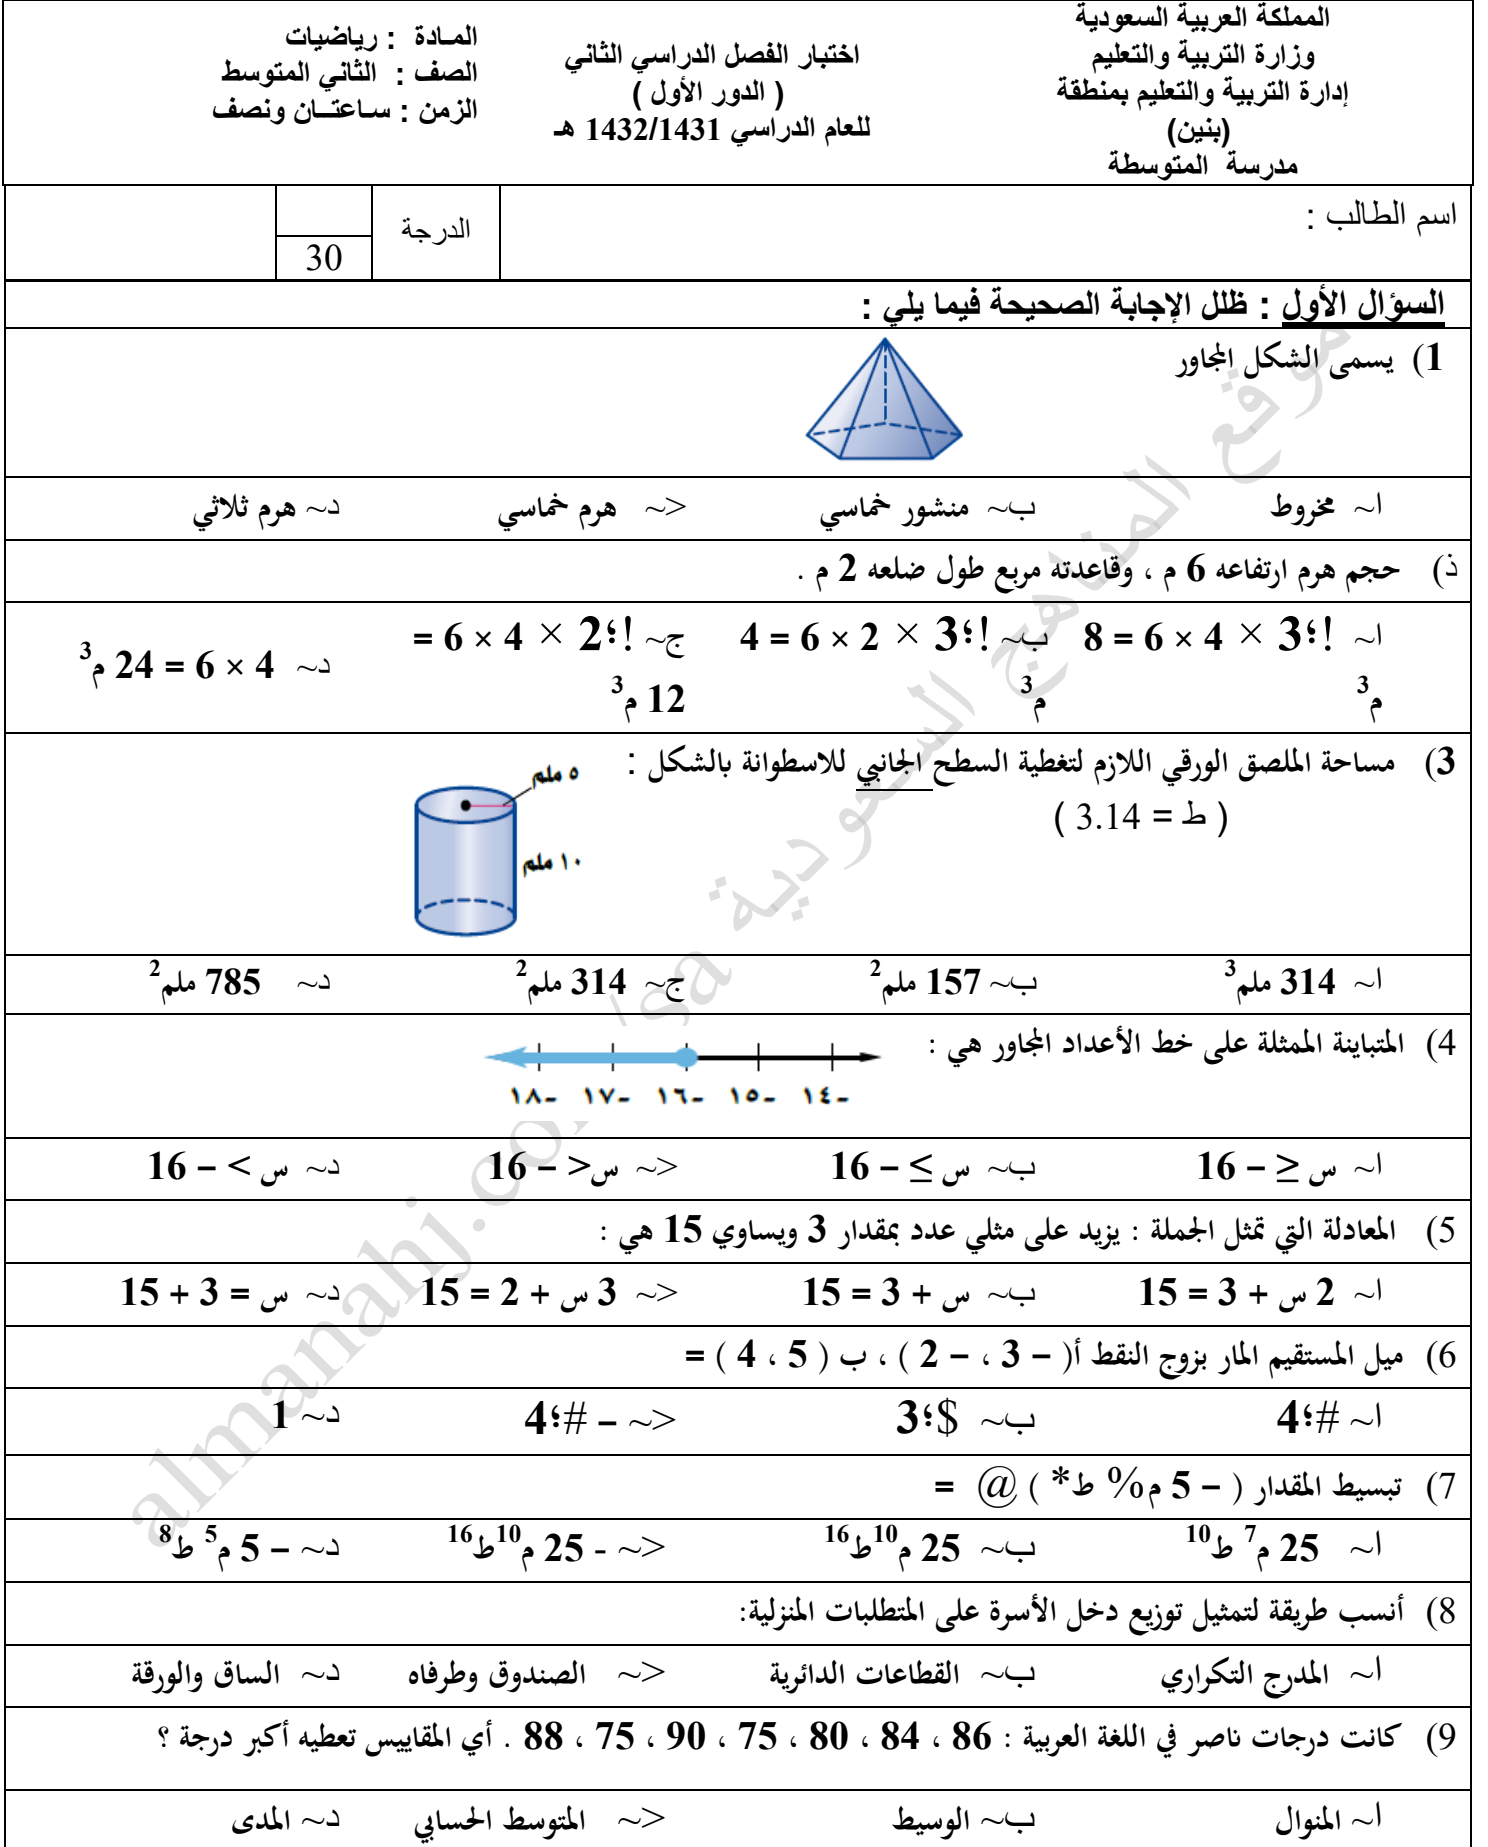 المملكة العربية السعودية
وزارة التربية والتعليم
إدارة التربية والتعليم بمنطقة
(بنين)
مدرسة المتوسطة
اختبار الفصل الدراسي الثاني
( الدور الأول )
للعام الدراسي 1432/1431 هـ
المـادة : رياضيات
الصف : الثاني المتوسط
الزمن : ساعتــان ونصف
اسم الطالب :
الدرجة
30
السؤال الأول : ظلل الإجابة الصحيحة فيما يلي :
1) يسمى الشكل المجاور
ا~ مخروط ب~ منشور خماسي >~ هرم خماسي د~ هرم ثلاثي
ذ) حجم هرم ارتفاعه 6 م ، وقاعدته مربع طول ضلعه 2 م .
ا~ !؛3 × 4 × 6 = 8 م3 ب~ !؛3 × 2 × 6 = 4 م3 ج~ !؛2 × 4 × 6 = 12 م3 د~ 4 × 6 = 24 م3
3) مساحة الملصق الورقي اللازم لتغطية السطح الجانبي للاسطوانة بالشكل :
( ط = 3.14 )
٥ ملم
١٠ ملم
ا~ 314 ملم3 ب~ 157 ملم2 ج~ 314 ملم2 د~ 785 ملم2
4) المتباينة الممثلة على خط الأعداد المجاور هي :
-١٨ -١٧ -١٦ -١٥ -١٤
ا~ س ≤ – 16 ب~ س ≥ – 16 >~ س< – 16 د~ س > – 16
5) المعادلة التي تمثل الجملة : يزيد على مثلي عدد بمقدار 3 ويساوي 15 هي :
ا~ 2 س + 3 = 15 ب~ س + 3 = 15 >~ 3 س + 2 = 15 د~ س = 3 + 15
6) ميل المستقيم المار بزوج النقط أ( – 3 ، – 2 ) ، ب ( 5 ، 4 ) =
ا~ #؛4 ب~ $؛3 >~ – #؛4 د~ 1
7) تبسيط المقدار ( – 5 م% ط* ) @ =
ا~ 25 م7 ط10 ب~ 25 م10ط16 >~ - 25 م10ط16 د~ – 5 م5 ط8
8) أنسب طريقة لتمثيل توزيع دخل الأسرة على المتطلبات المنزلية:
أ~ المدرج التكراري ب~ القطاعات الدائرية >~ الصندوق وطرفاه د~ الساق والورقة
9) كانت درجات ناصر في اللغة العربية : 86 ، 84 ، 80 ، 75 ، 90 ، 75 ، 88 . أي المقاييس تعطيه أكبر درجة ؟
أ~ المنوال ب~ الوسيط >~ المتوسط الحسابي د~ المدى
موقع المناهج السعودية almanahj.com/sa